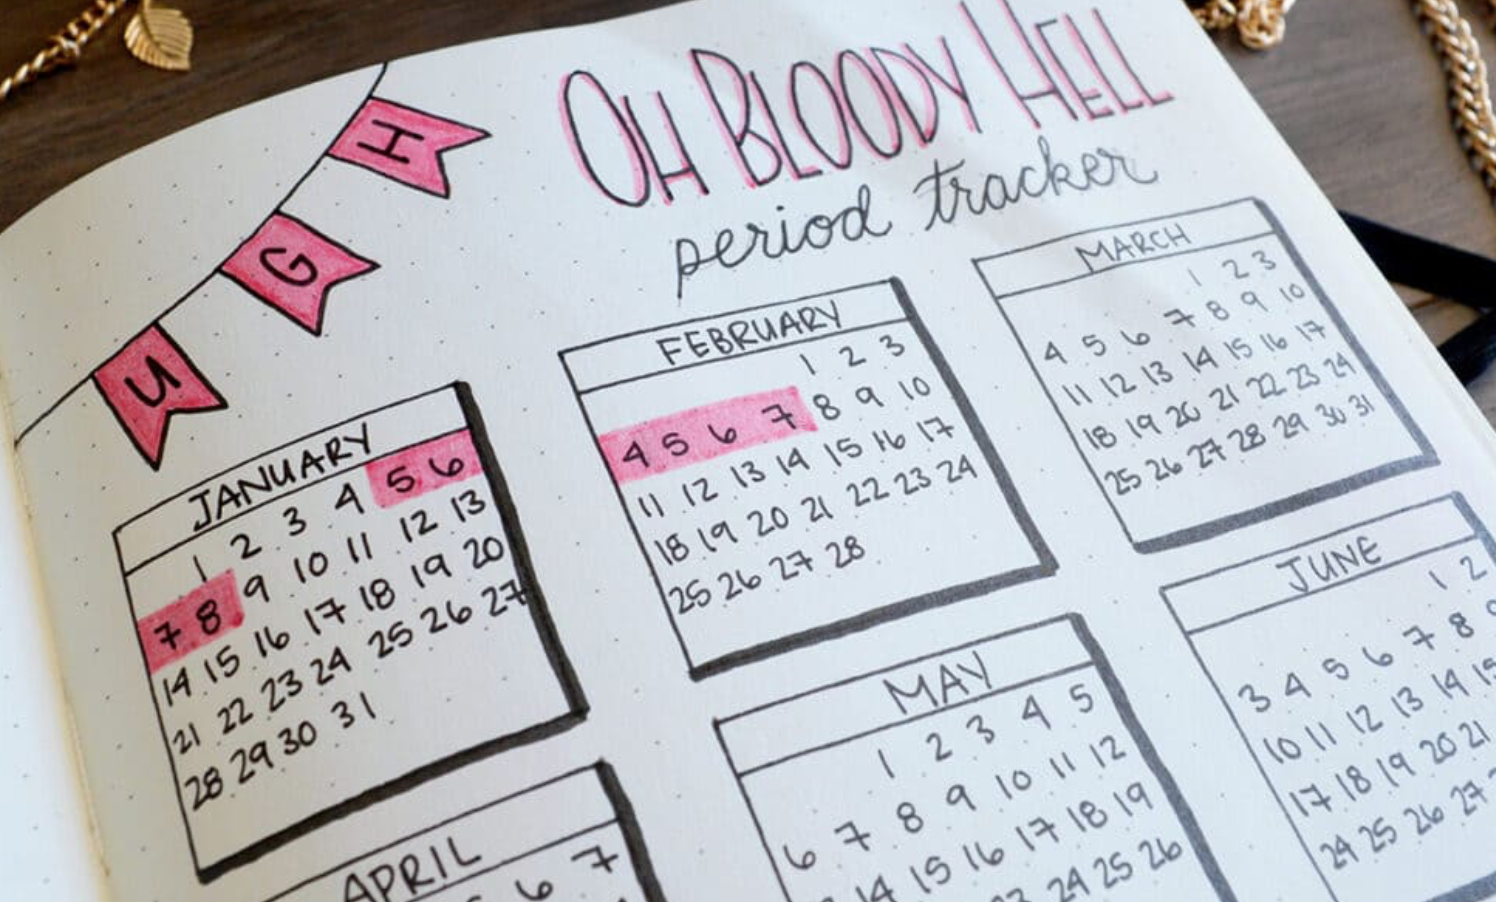 UGH
OH BLOODY HELL
period tracker
JANUARY
1 2 3 4 5 6
7 8 9 10 11 12 13
14 15 16 17 18 19 20
21 22 23 24 25 26 27
28 29 30 31
FEBRUARY
1 2 3
4 5 6 7 8 9 10
11 12 13 14 15 16 17
18 19 20 21 22 23 24
25 26 27 28
MARCH
1 2 3
4 5 6 7 8 9 10
11 12 13 14 15 16 17
18 19 20 21 22 23 24
25 26 27 28 29 30 31
APRIL
6 7
MAY
1 2 3 4 5
6 7 8 9 10 11 12
14 15 16 17 18 19
24 25 26
JUNE
1 2
3 4 5 6 7 8
10 11 12 13 14 15
17 18 19 20 21
24 25 26 27